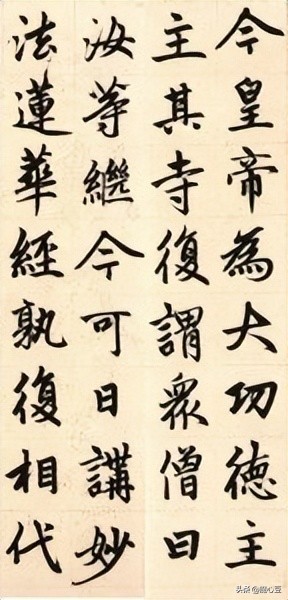 今皇帝為大功德主
主其寺復謂眾僧曰
汝等繼今可日講妙
法蓮華經孰復相代
头条@幽心豆